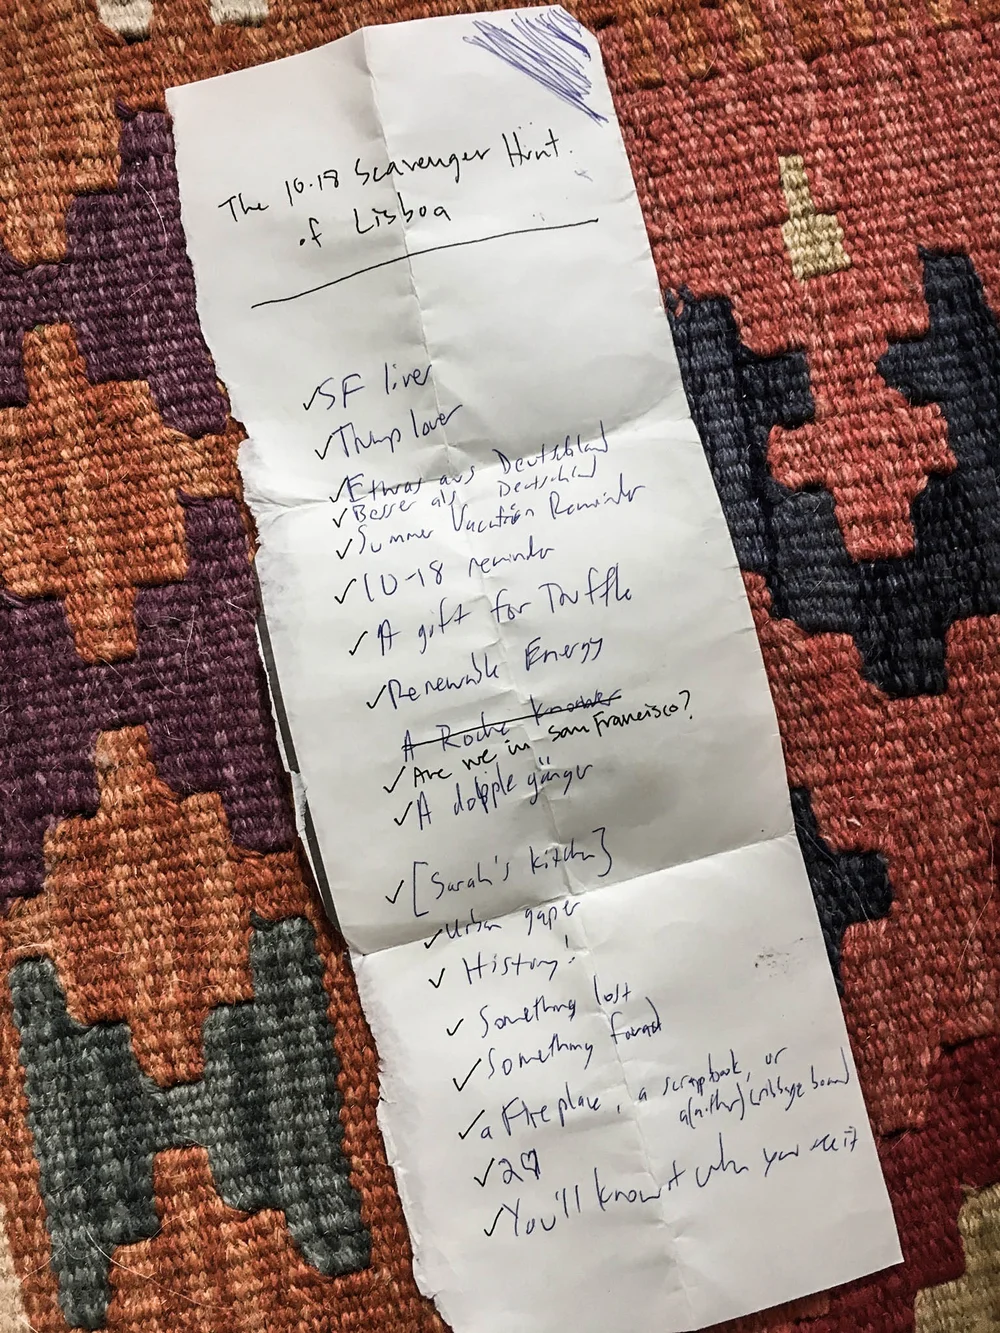 The 10.18 Scavenger Hunt
of Lisboa
✓ SF liver
✓ Thump lover
✓ Etwas aus Deutschland
✓ Besser als Deutschland
✓ Summer Vacation Reminder
✓ 10-18 reminder
✓ A gift for Truffle
✓ Renewable Energy
A Roche Knocker
✓ Are we in San Francisco?
✓ A dopple gänger
✓ [Sarah's kitchen]
✓ Urban gaper
✓ History!
✓ Something lost
✓ Something found
✓ a Fireplace, a scrapbook, or
a(nother) cribbage board
✓ 2♡
✓ You'll know it when you see it